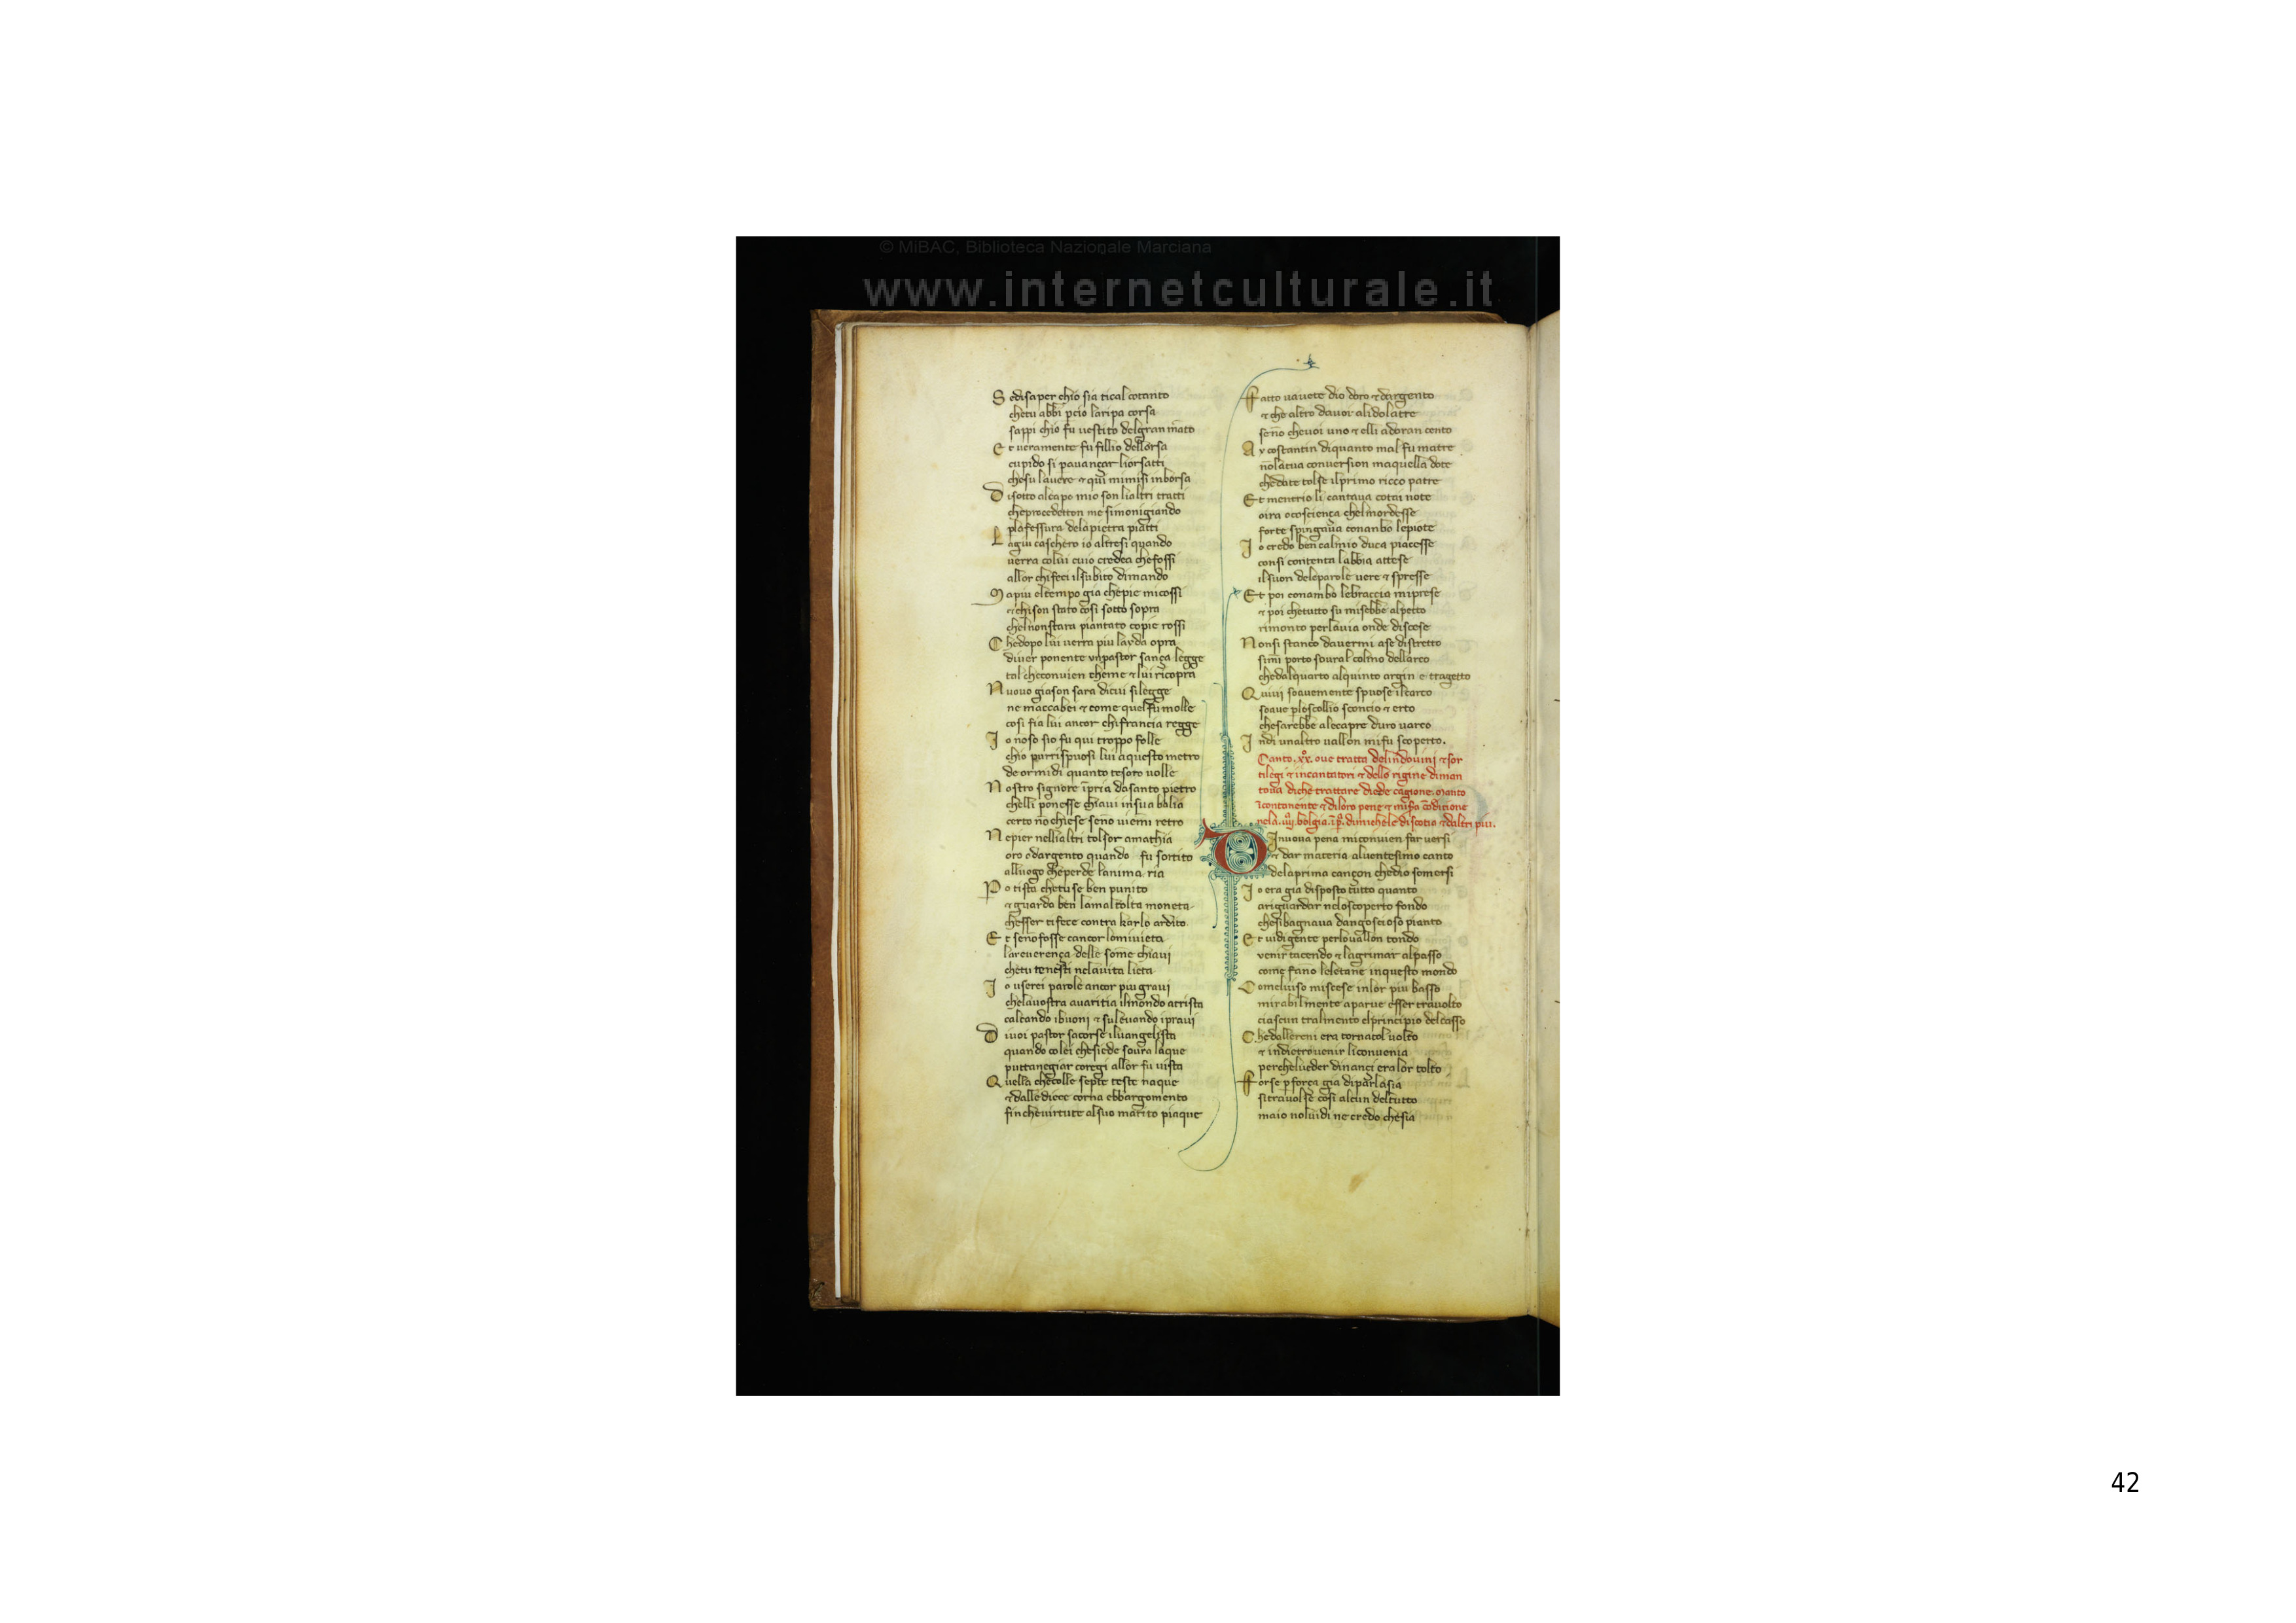 © MiBAC, Biblioteca Nazionale Marciana
www.internetculturale.it
S edisaper chio sia tical cotanto
chetu abbi pcio laripa corsa
sappi chio fu vestito delgran mãto
E t ueramente fu fillio dellorsa
cupido si pauançar liorsatti
chesu lauere ⁊ qui mimisi inborsa
D isotto alcapo mio son lialtri tratti
cheprocedetton me simonigiando
plafessura delapietra piatti
L agiu caschero io altresi quando
uerra colui cuio credea chefossi
allor chifeci ilsubito dimando
M apiu eltempo gia chepie micossi
⁊ chison stato cosi sotto sopra
chelnonstara piantato copie rossi
C hedopo lui uerra piu layda opra
diuer ponente vnpastor sança legge
tal checonuien cheme ⁊ lui ricopra
N uouo giason sara dicui silegge
ne maccabei ⁊ come quel fu molle
cosi fia lui ancor chifrancia regge
I o noso sio fu qui troppo folle
chio purrispuosi lui aquesto metro
deormidi quanto tesoro uolle
N ostro signore ipria dasanto pietro
chelli ponesse chiaui insua balia
certo nõ chiese senõ uiemi retro
N epier nellialtri tolsor amathia
oro odargento quando fu sortito
alluogo cheperde lanima ria
P o tista chetuse ben punito
⁊ guarda ben lamaltolta moneta
chesser tifece contra karlo ardito
E t senõfosse cancor lomiuieta
lareuerença delle some chiaui
chetu tenesti nelauita lieta
I o userei parole ancor piu graui
chelauostra auaritia ilmondo atrista
calcando ibuoni ⁊ suleuando iprauí
D iuoi pastor sacorse iluangelista
quando colei chesiede soura laque
puttanegiar coregi allor fu uista
Q uella checolle septe teste naque
⁊ dalle diece corna ebbargomento
fincheuirtute alsuo marito piaque
F atto vauete dio doro ⁊ dargento
⁊ che altro dauor alidolatre
senõ cheuoi uno ⁊ elli adoran cento
A y costantin diquanto mal fu matre
nõlatua conuersion maquella dote
chedate tolse ilprimo ricco patre
E t mentrio li cantaua cotai note
oira ocosciença chelmordesse
forte spingaua conanbo lepiote
I o credo ben calmio duca piacesse
consi contenta labbia attese
ilsuon deleparole uere ⁊ spresse
E t poi conambo lebraccia miprese
⁊ poi chetutto su misebbe alpetto
rimonto perlauia onde discese
N onsi stanco dauermi ase distretto
simi porto soural colmo dellarco
chedalquarto alquinto argin e tragetto
Q uiui soauemente spuose ilcarco
soaue ploscollio sconcio ⁊ erto
chesarebbe alecapre duro uarco
I ndi unaltro uallon mifu scoperto.
Canto .xx. oue tratta delindouini ⁊ sor
tilegi ⁊ incantatori ⁊ dello rigine diman
toua diche trattare diede cagione. Manto
nela .iiij. bolgia. dimichele discotia ⁊ daltri piu.
D Inuoua pena miconuien far uersi
⁊ dar materia aluentesimo canto
delaprima cançon chedio somersi
I o era gia disposto tutto quanto
ariguardar neloscoperto fondo
chesibagnaua dangoscioso pianto
E t uidi gente perlouallon tondo
uenir tacendo ⁊ lagrimar alpasso
come fano leletane inquesto mondo
C omeluiso miscese inlor piu basso
mirabilmente aparue esser trauolto
ciascun tralmento elprincipio delcasso
C hedallereni era tornatol uolto
⁊ indietrouenir liconuenia
percheluéder dinançi eralor tolto
F orse pforça gia diparlasia
sitrauolse cosi alcun deltutto
maio noluidi ne credo chesia
42